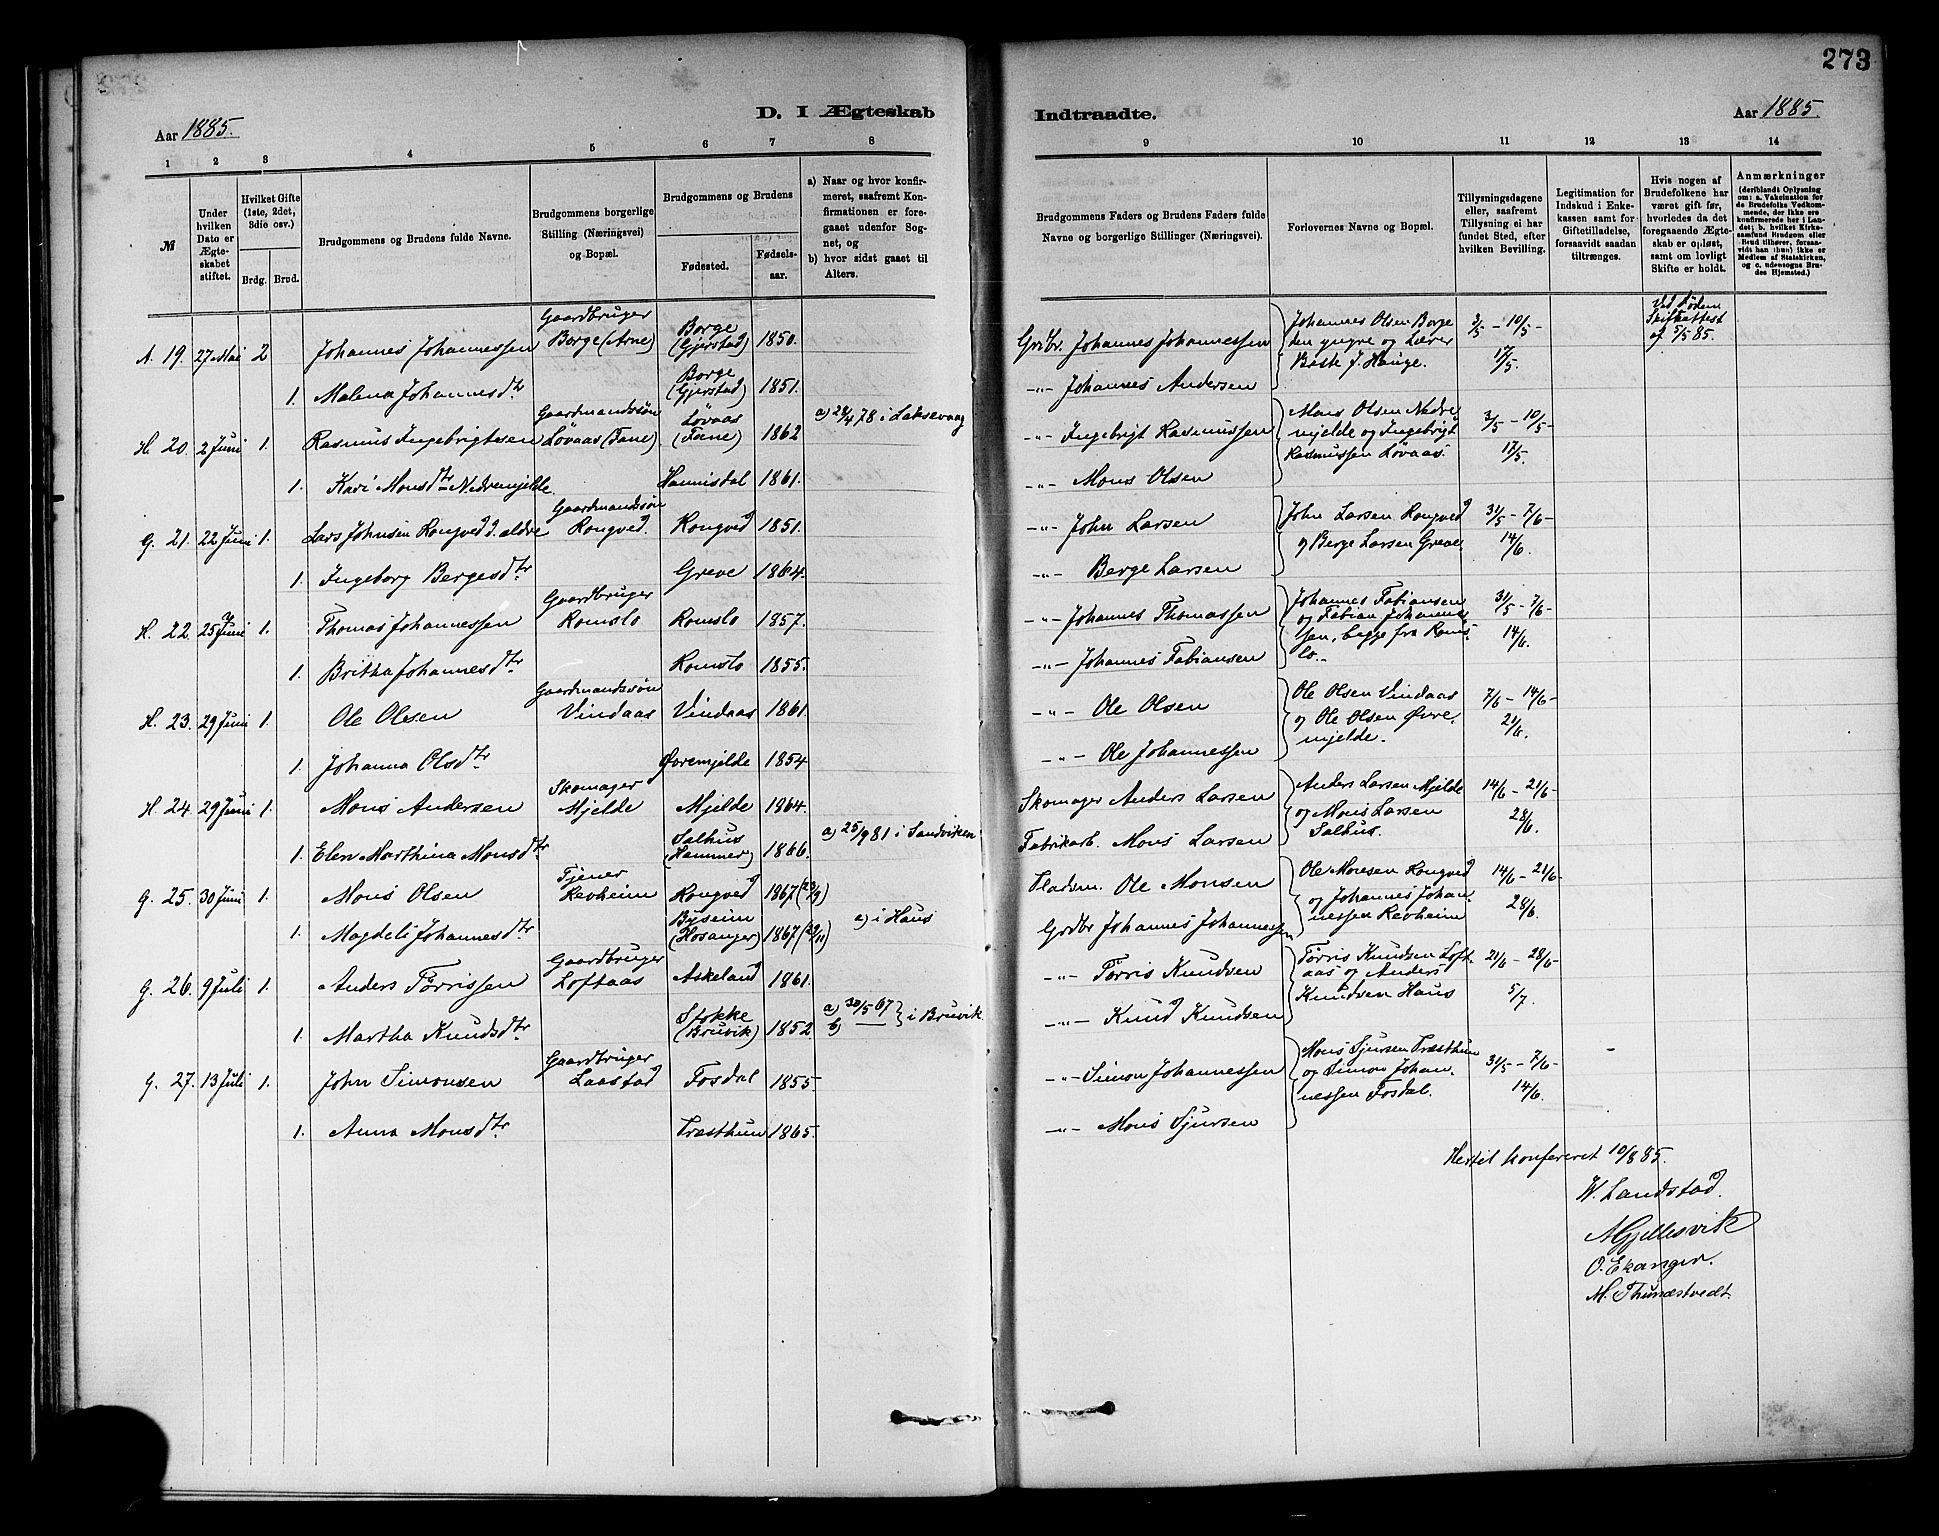 273
D. I Ægteskab Indtraadte.
Aar 1885. Aar 1885.
1 2 3 4 5 6 7 8 9 10 11 12 13 14
№
Under hvilken Dato er Ægteskabet stiftet.
Hvilket Gifte (1ste, 2det, 3die osv.)
Brdg. Brud.
Brudgommens og Brudens fulde Navne.
Brudgommens borgerlige Stilling (Næringsvei) og Bopæl.
Brudgommens og Brudens
Fødested. Fødselsaar.
a) Naar og hvor konfirmeret, saafremt Konfirmationen er foregaaet udenfor Sognet, og
b) hvor sidst gaaet til Alters.
Brudgommens Faders og Brudens Faders fulde Navne og borgerlige Stillinger (Næringsvei).
Forlovernes Navne og Bopæl.
Tillysningsdagene eller, saafremt Tillysning ei har fundet Sted, efter hvilken Bevilling.
Legitimation for Indskud i Enkekassen samt for Giftetilladelse, forsaavidt saadan tiltrænges.
Hvis nogen af Brudefolkene har været gift før, hvorledes da det foregaaende Ægteskab er opløst, samt om lovligt Skifte er holdt.
Anmærkninger (deriblandt Oplysning om: a. Vakcination for de Brudefolks Vedkommende, der ikke ere konfirmerede her i Landet; b. hvilket Kirkesamfund Brudgom eller Brud tilhører, forsaavidt han (hun) ikke er Medlem af Statskirken, og c. udensogns Brudes Hjemsted.)
A. 19. 27 Mai 2 Johannes Johannessen Gaardbruger Borge (Arne) Borge (Gjerstad) 1850. Grdbr. Johannes Johannessen Johannes Olsen Borge den yngre og Lærer Baste J. Hauge. 3/5 - 10/5 - 17/5. Ved Døden Skifteattest af 5/5 85.
1. Malena Johannesdtr Borge (Gjerstad) 1851. -"- Johannes Andersen
H. 20. 2 Juni 1. Rasmus Ingebrigtsen Gaardmandssøn Løvaas (Fane) Løvaas (Fane) 1862 a) 28/4 78 i Laksevaag -"- Ingebrigt Rasmussen Mons Olsen Nedremjelde og Ingebrigt Rasmussen Løvaas. 3/5 - 10/5 - 17/5.
1. Kari Monsdtr Nedremjelde. Hannisdal 1861. -"- Mons Olsen
G. 21. 22 Juni 1. Lars Johnsen Rongved d. ældre Gaardmandssøn Rongved. Rongved 1851. -"- John Larsen John Larsen Rongved og Berge Larsen Greve. 31/5 - 7/6 - 14/6.
1. Ingeborg Bergesdtr Greve 1864. -"- Berge Larsen
H. 22. 25 Juni 1. Thomas Johannessen Gaardbruger Romslo Romslo 1857. -"- Johannes Thomassen Johannes Fabiansen og Fabian Johannessen, begge fra Romslo. 31/5 - 7/6 - 14/6.
1. Britha Johannesdtr Romslo 1855. -"- Johannes Fabiansen
H. 23. 29 Juni 1. Ole Olsen Gaardmandssøn Vindaas Vindaas 1861. -"- Ole Olsen Ole Olsen Vindaas og Ole Olsen Øvremjelde. 7/6 - 14/6 - 21/6.
1. Johanna Olsdtr Øvremjelde 1854 -"- Ole Johannessen
H. 24. 29 Juni 1. Mons Andersen Skomager Mjelde Mjelde 1864. Skomager Anders Larsen Anders Larsen Mjelde og Mons Larsen Salhus. 14/6 - 21/6 - 28/6.
1. Elen Marthina Monsdtr Salhus (Hammer) 1866. a) 25/9 81 i Sandviken Fabrikarb. Mons Larsen
G. 25. 30 Juni 1. Mons Olsen Tjener Revheim Rongved 1867 (23/9) Pladsm. Ole Monsen Ole Monsen Rongved og Johannes Johannessen Revheim 14/6 - 21/6 - 28/6.
1. Magdeli Johannesdtr Byseim (Hosanger) 1867 (29/11) a) i Haus Grdbr Johannes Johannessen
G. 26. 9 Juli 1. Anders Tørrissen Gaardbruger Loftaas Askeland 1861. -"- Tørris Knudsen Tørris Knudsen Loftaas og Anders Knudsen Haus 21/6 - 28/6 - 5/7.
1. Martha Knudsdtr Stokke (Bruvik) 1852. a) 30/5 67 b) — i Bruvik -"- Knud Knudsen
G. 27. 13 Juli 1. John Simonsen Gaardbruger Laastad Fosdal 1855 -"- Simon Johannessen Mons Sjursen Træsthum og Simon Johannessen Fosdal. 31/5 - 7/6 - 14/6.
1. Anna Monsdtr Træsthum 1865. -"- Mons Sjursen
Hertil konfereret 10/8 85.
W. Landstad.
A Gjellesvik
O. Ekanger.
M. Thunestvedt.